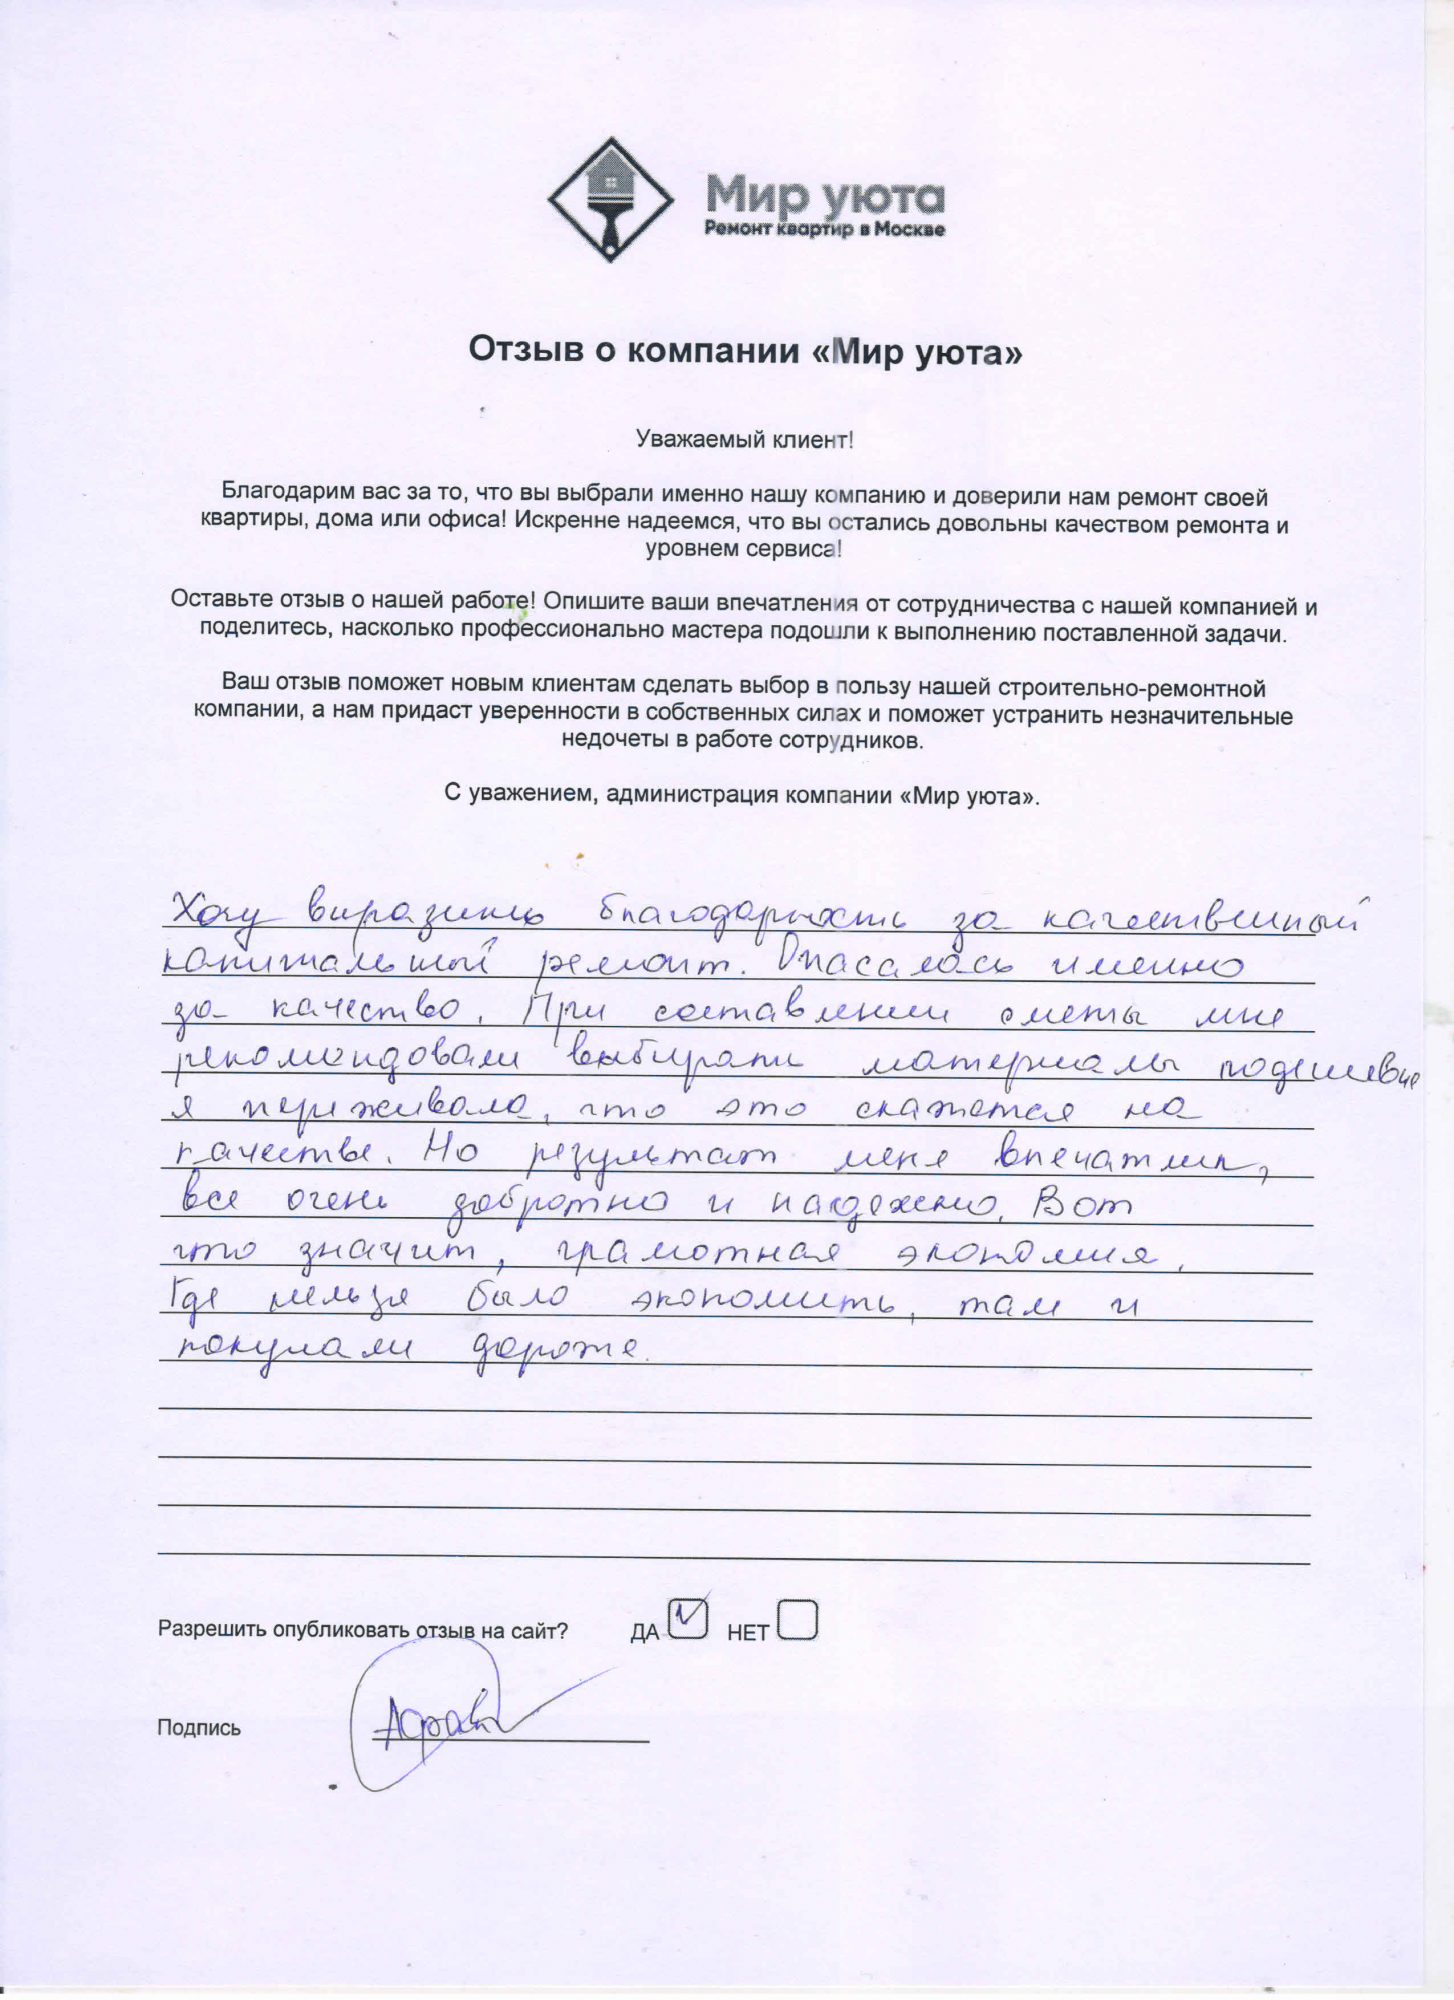 Мир уюта
Ремонт квартир в Москве
Отзыв о компании «Мир уюта»
Уважаемый клиент!
Благодарим вас за то, что вы выбрали именно нашу компанию и доверили нам ремонт своей
квартиры, дома или офиса! Искренне надеемся, что вы остались довольны качеством ремонта и
уровнем сервиса!
Оставьте отзыв о нашей работе! Опишите ваши впечатления от сотрудничества с нашей компанией и
поделитесь, насколько профессионально мастера подошли к выполнению поставленной задачи.
Ваш отзыв поможет новым клиентам сделать выбор в пользу нашей строительно-ремонтной
компании, а нам придаст уверенности в собственных силах и поможет устранить незначительные
недочеты в работе сотрудников.
С уважением, администрация компании «Мир уюта».
Хочу виразить благодарность за качественный
капитальный ремонт. Опасалась именно
за качество. При составлении сметы мне
рекомендовали выбирать материалы подешевле
я переживала, что это скажется на
качестве. Но результат меня впечатлил,
все очень добротно и надежно. Вот
что значит, грамотная экономия.
Где нельзя было экономить, там и
покупали дороже.
Разрешить опубликовать отзыв на сайт? ДА НЕТ
Подпись